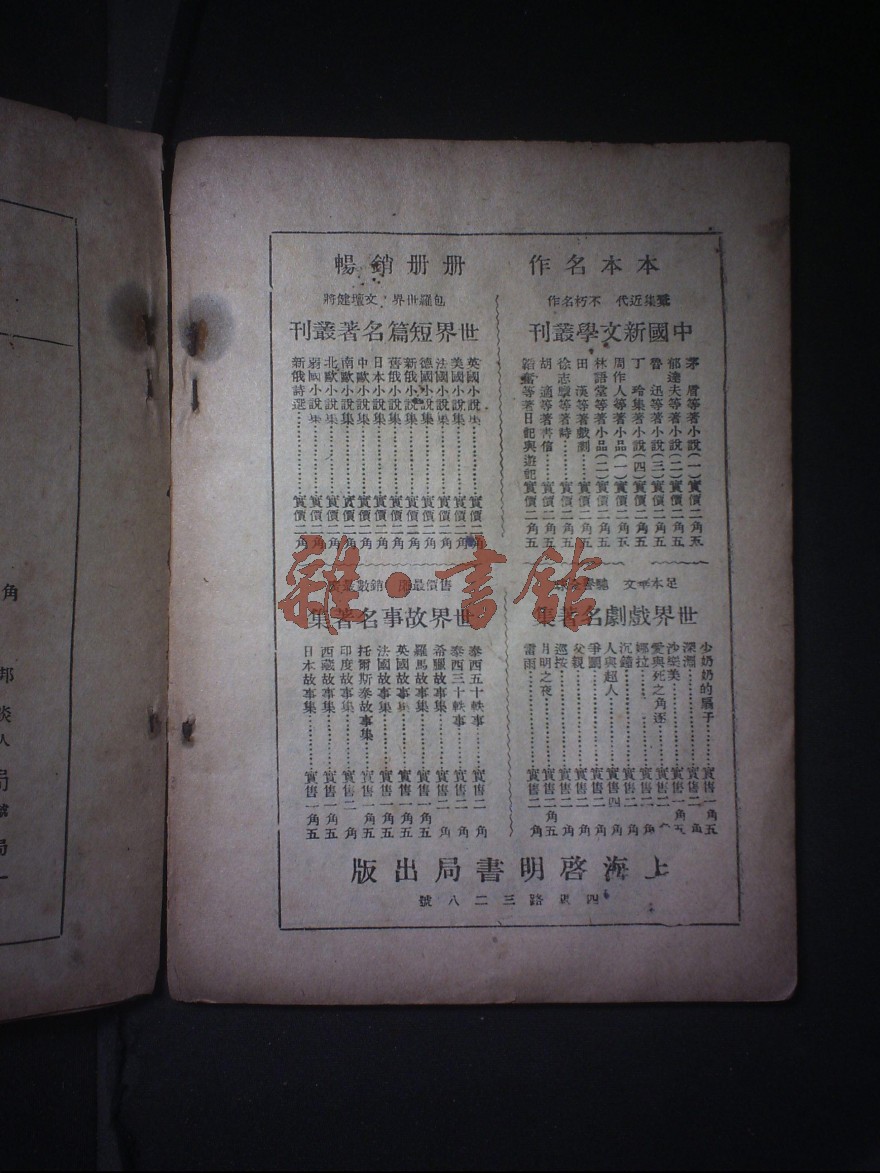 本本名作 册册銷暢
蒐集近代 不朽名作
中國新文學叢刊
茅盾等著小說(一)實價二角五
郁達夫等著小說(二)實價二角五
魯迅等著小說(三)實價二角五
丁玲集著小說(四)實價二角五
周作人等著小品(一)實價二角五
林語堂等著小品(二)實價二角五
田漢等著戲劇……實價二角五
徐志摩等著詩……實價二角五
胡適等著書信……實價二角五
韜奮等著日記與遊記實價二角五
包羅世界 文壇健將
世界短篇名著叢刊
英國小說集……實價二角
美國小說集……實價二角
法國小說集……實價二角
德國小說集……實價二角
新俄小說集……實價二角
舊俄小說集……實價二角
日本小說集……實價二角
中歐小說集……實價二角
南歐小說集……實價二角
北歐小說集……實價二角
弱國小說集……實價二角
新俄詩選……實價二角
足本 文
世界戲劇名著集
少奶奶的扇子……實售一角五
深淵……實售二角
沙樂美……實售一角五
愛與死之角逐……實售二
娜拉……實售二角
沉鐘……實售二角
人與超人……實售四角
爭鬭……實售二角
父親……實售二角
巡按……實售二角
月明之夜……實售一角五
雷雨……實售二角
售價最 銷數
世界故事名著集
泰西五十軼事……實售二角
泰西三十軼事……實售二角
希臘故事集……實售二角
羅馬故事集……實售一角五
英國故事集……實售一角五
法國故事集……實售一角五
托爾斯泰故事集……實售一角五
印度故事集……實售二角
西藏故事集……實售一角五
日本故事集……實售一角五
上海啓明書局出版
四馬路三二八號
雜·書館
角
邦
談
人
局
號
局